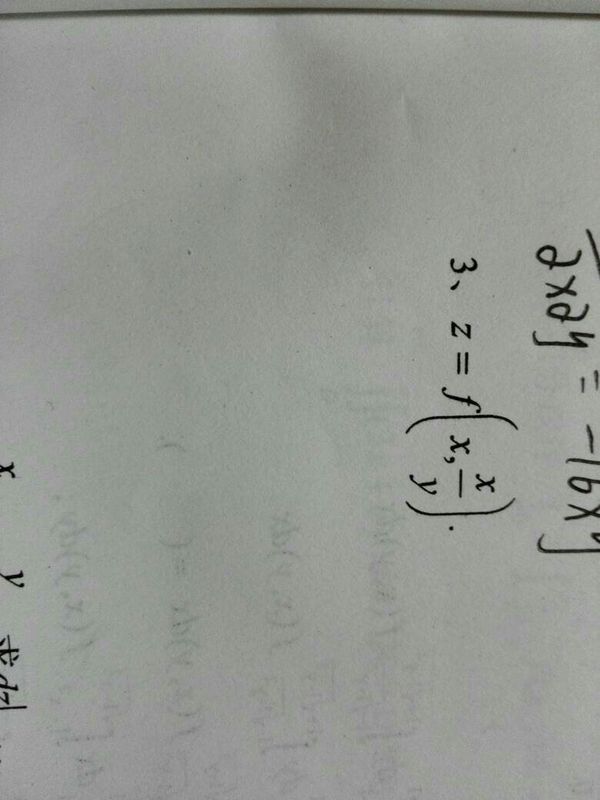 ∂x∂y = -16xy
3、 z = f(x, x/y).
x y 求dz